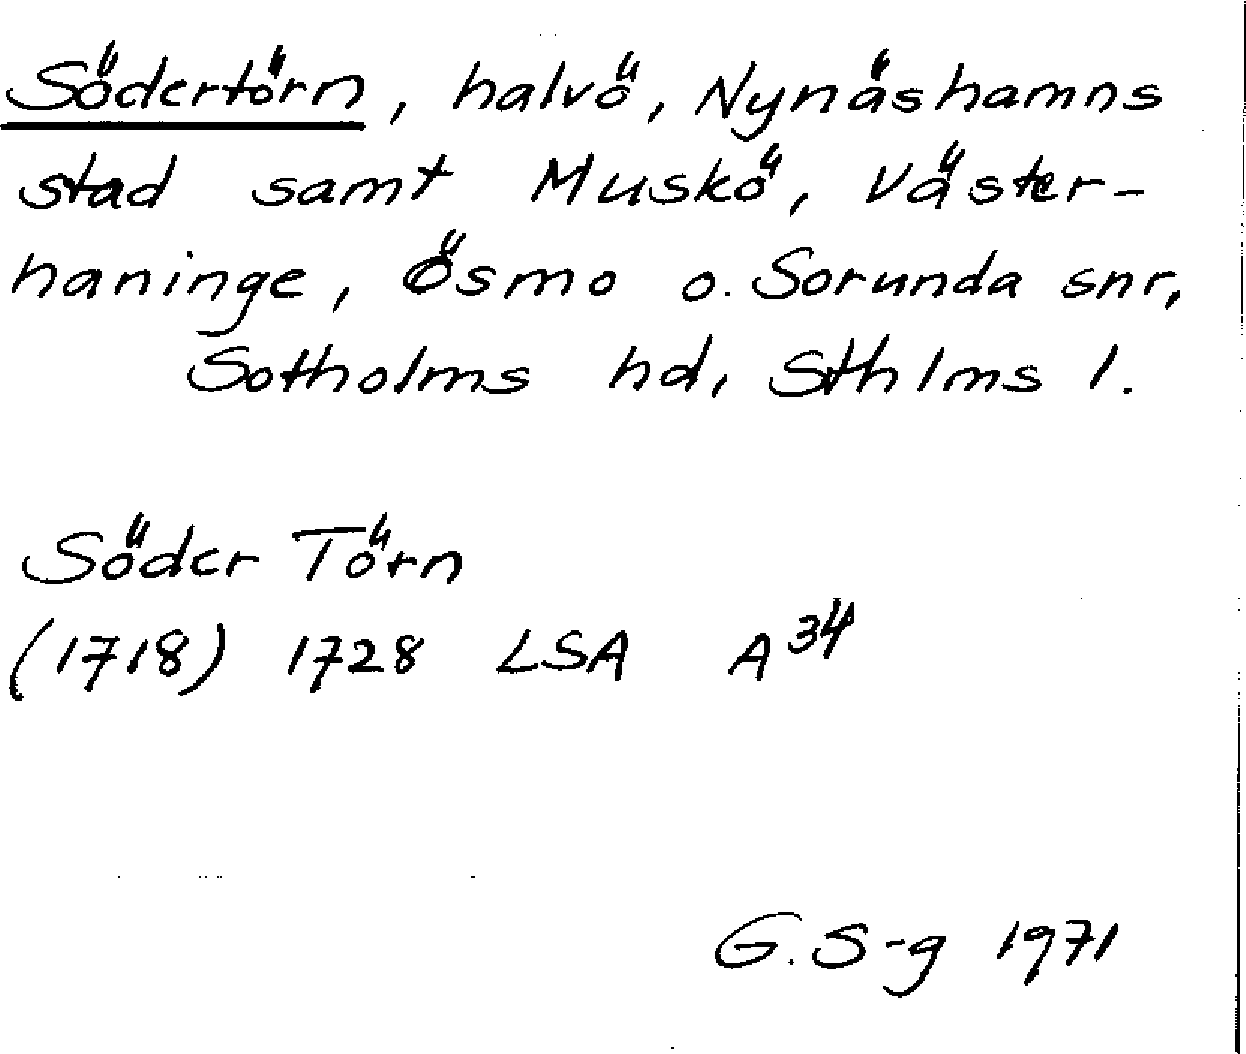 Södertörn, halvö, Nynäshamns
stad samt Muskö, Väster-
haninge, Ösmo o. Sorunda snr,
Sotholms hd, Sthlms l.
Söder Törn
(1718) 1728 LSA A³⁴
G. S-g 1971